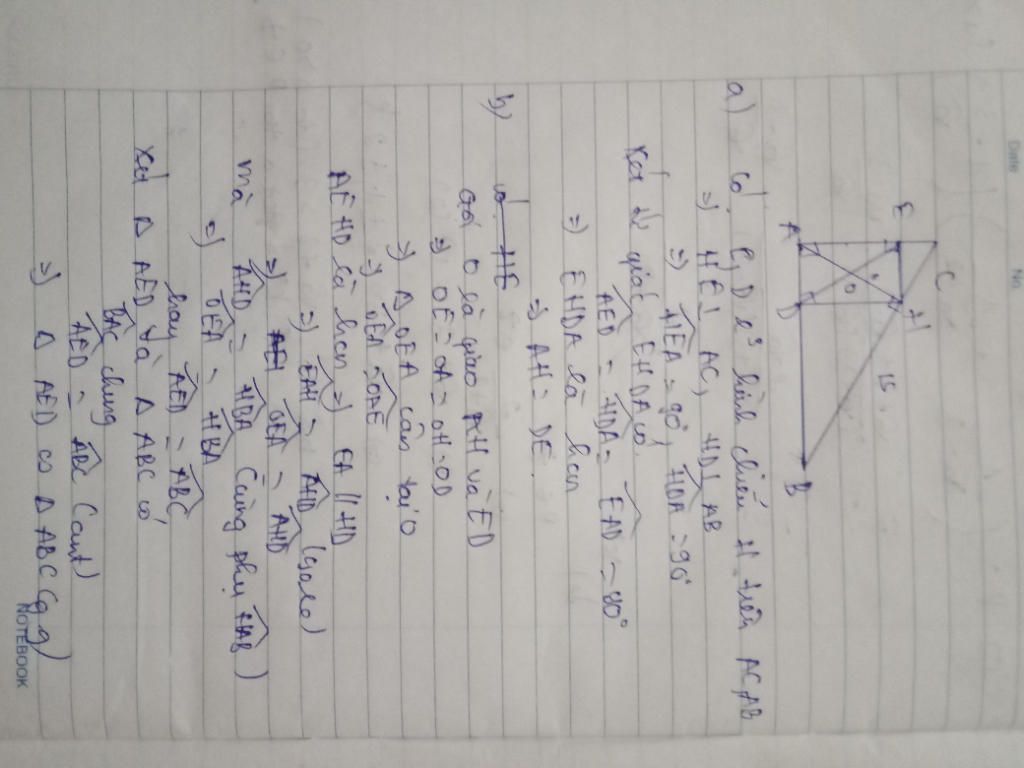 Date
No.
C
E
H
O
15
A
D
B
a) có E, D là hình chiếu H trên AC, AB
=) HE ⊥ AC, HD ⊥ AB
=) HEA = 90°, HDA = 90°
Xét tứ giác EHDA có
AED = HDA = EAD = 90°
=) EHDA là hcn
=) AH = DE
b) có HE
gọi O là giao AH và ED
=) OE = OA = OH = OD
=) Δ OEA cân tại O
=) OEA = OAE
AEHD là hcn =) EA // HD
=) EAH = AHD (sole)
=) AEH OEA = AHD
mà AHD = HBA (cùng phụ HAB)
=) OEA = HBA
hay AED = ABC
Xét Δ AED và Δ ABC có
BAC chung
AED = ABC (cmt)
=) Δ AED ∽ Δ ABC (g.g)
NOTEBOOK